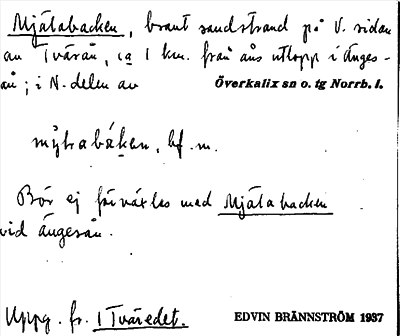 Mjätabacken, brant sandstrand på V. sidan
av Tvärån, ca 1 km. från åns utlopp i Änges-
ån; i N-delen av Överkalix sn o. tg Norrb. l.
bf. m.
Bör ej förväxlas med Mjätabacken
vid Ängesån.
Uppg. fr. 1 Tväredet. EDVIN BRÄNNSTRÖM 1937